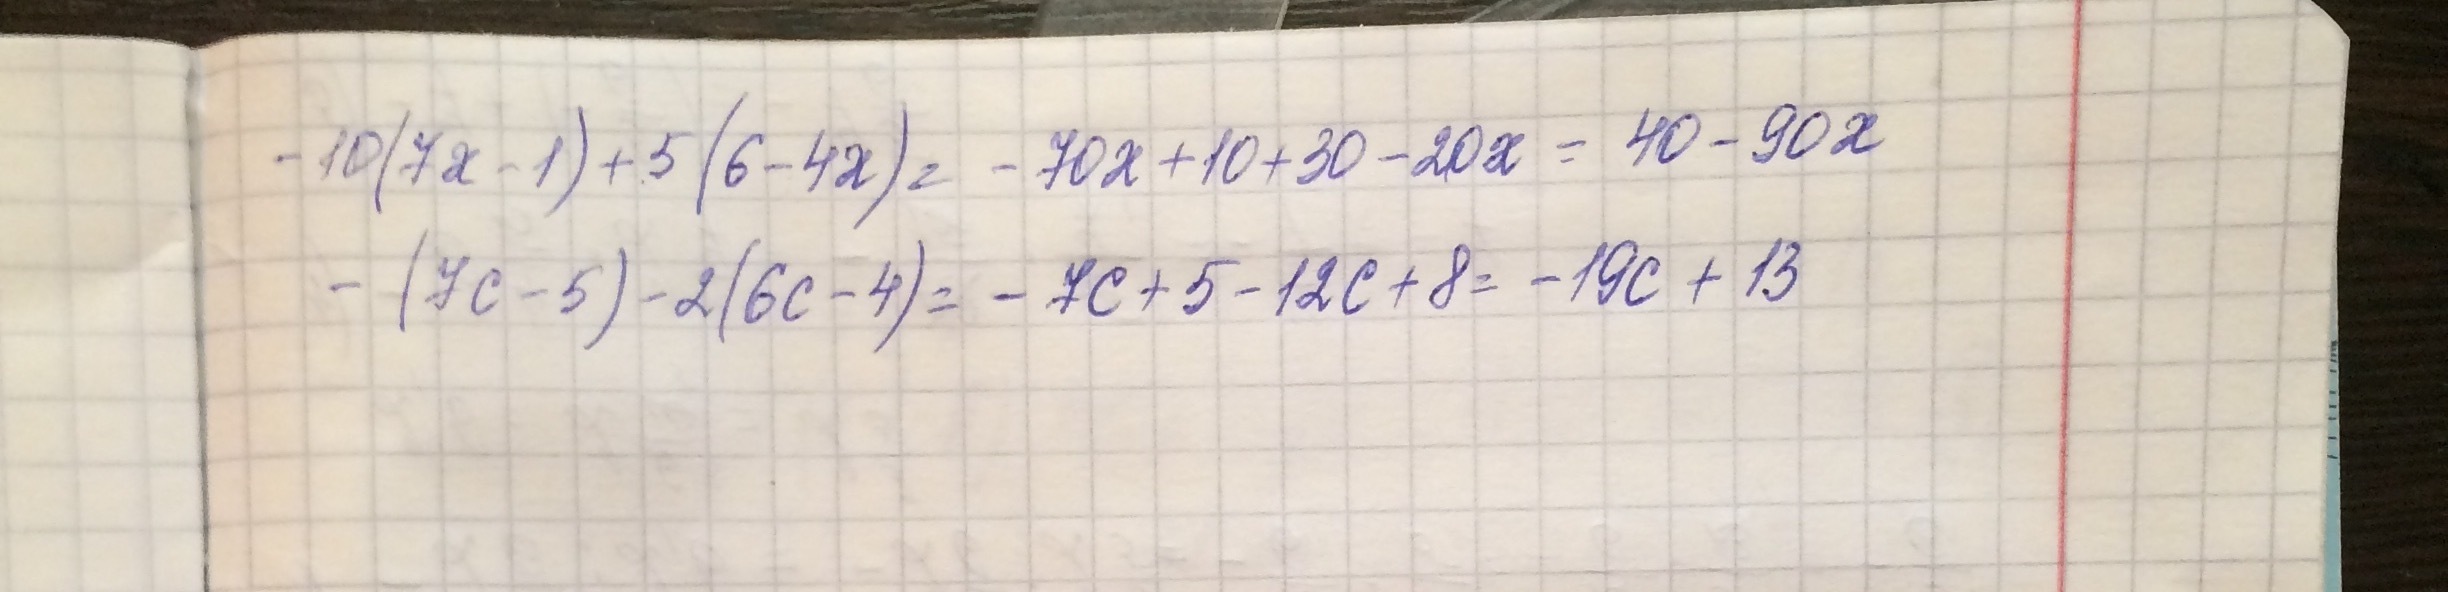 -10(7x-1)+5(6-4x)= -70x+10+30-20x = 40-90x
-(7c-5)-2(6c-4)= -7c+5-12c+8= -19c+13